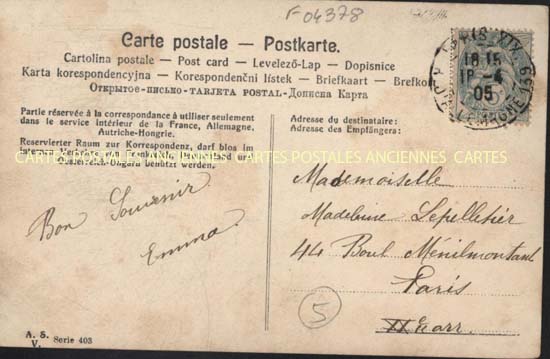 F-04378
Carte postale — Postkarte.
Cartolina postale — Post card — Levelező-Lap — Dopisnice
Karta korespondencyjna — Korespondenční lístek — Briefkaart — Brefkort
Открытое-письмо-Tarjeta postal-Дописна Карта
Partie réservée à la correspondance à utiliser seulement
dans le service intérieur de la France, Allemagne,
Autriche-Hongrie.
Reservierter Raum zur Korrespondenz, darf blos im
internen Verkehr von Frankreich, Deutschland und
Oesterreich-Ungarn benützt werden.
CARTES POSTALES ANCIENNES CARTES POSTALES ANCIENNES CARTES
Bon Souvenir
Emma
A. S.
V. Serie 403
PARIS XIX
18 15
18 -4
05
R. D'ALLEMAGNE 139
Adresse du destinataire:
Adresse des Empfängers:
Mademoiselle
Madeleine Lepelletier
44 Boul Ménilmontant
Paris
XX arr.
5